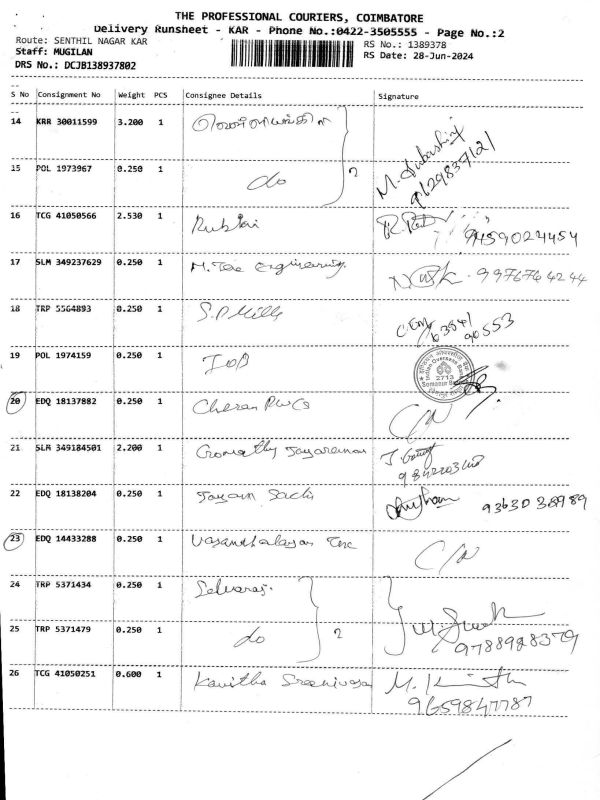 THE PROFESSIONAL COURIERS, COIMBATORE
Delivery Runsheet - KAR - Phone No.:0422-3505555 - Page No.:2
Route: SENTHIL NAGAR KAR
RS No.: 1389378
Staff: MUGILAN
RS Date: 28-Jun-2024
DRS No.: DCJB138937802
S No Consignment No Weight PCS Consignee Details Signature
14 KRR 30011599 3.200 1
15 POL 1973967 0.250 1 do 2 M.
9629837121
16 TCG 41050566 2.530 1 9459024454
17 SLM 349237629 0.250 1 M. Tec Engineering. 9976764244
18 TRP 5564893 0.250 1 S.P Mills 63841
90553
19 POL 1974159 0.250 1 IOB
Indian Overseas Bank
2713
20 EDQ 18137882 0.250 1 Cheran PWCS C/N
21 SLM 349184501 2.200 1 Gomathy Jayaraman J.
22 EDQ 18138204 0.250 1 93630 38989
23 EDQ 14433288 0.250 1 C/N
24 TRP 5371434 0.250 1 Selvaraj.
25 TRP 5371479 0.250 1 do 2 9788928379
26 TCG 41050251 0.600 1 Kavitha Sreenivasa M.
9659847787